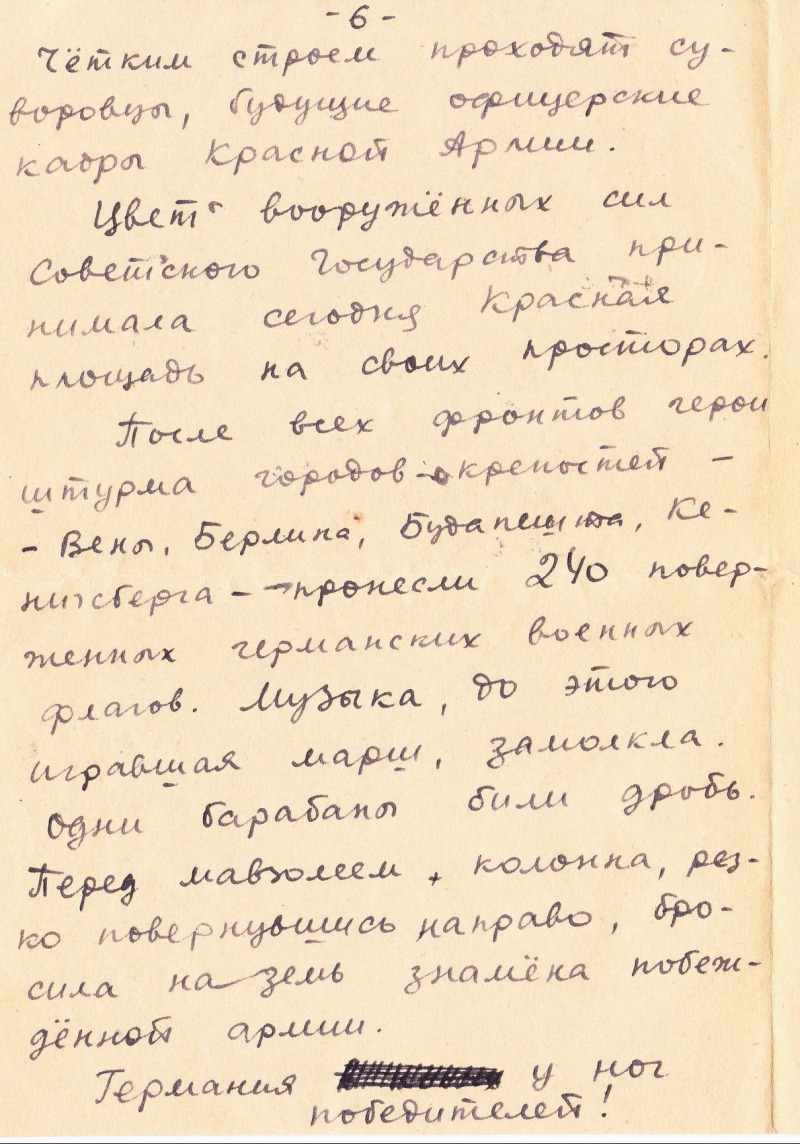 - 6 -
Чётким строем проходят су-
воровцы, будущие офицерские
кадры Красной Армии.
Цвет вооружённых сил
Советского Государства при-
нимала сегодня Красная
площадь на своих просторах.
После всех фронтов герои
штурма городов-крепостей -
- Вены, Берлина, Будапешта, Ке-
нигсберга - пронесли 240 повер-
женных германских военных
флагов. Музыка, до этого
игравшая марш, замолкла.
Одни барабаны били дробь.
Перед мавзолеем, колонна, рез-
ко повернувшись направо, бро-
сила на земь знамёна побеж-
дённой армии.
Германия у ног
победителей!